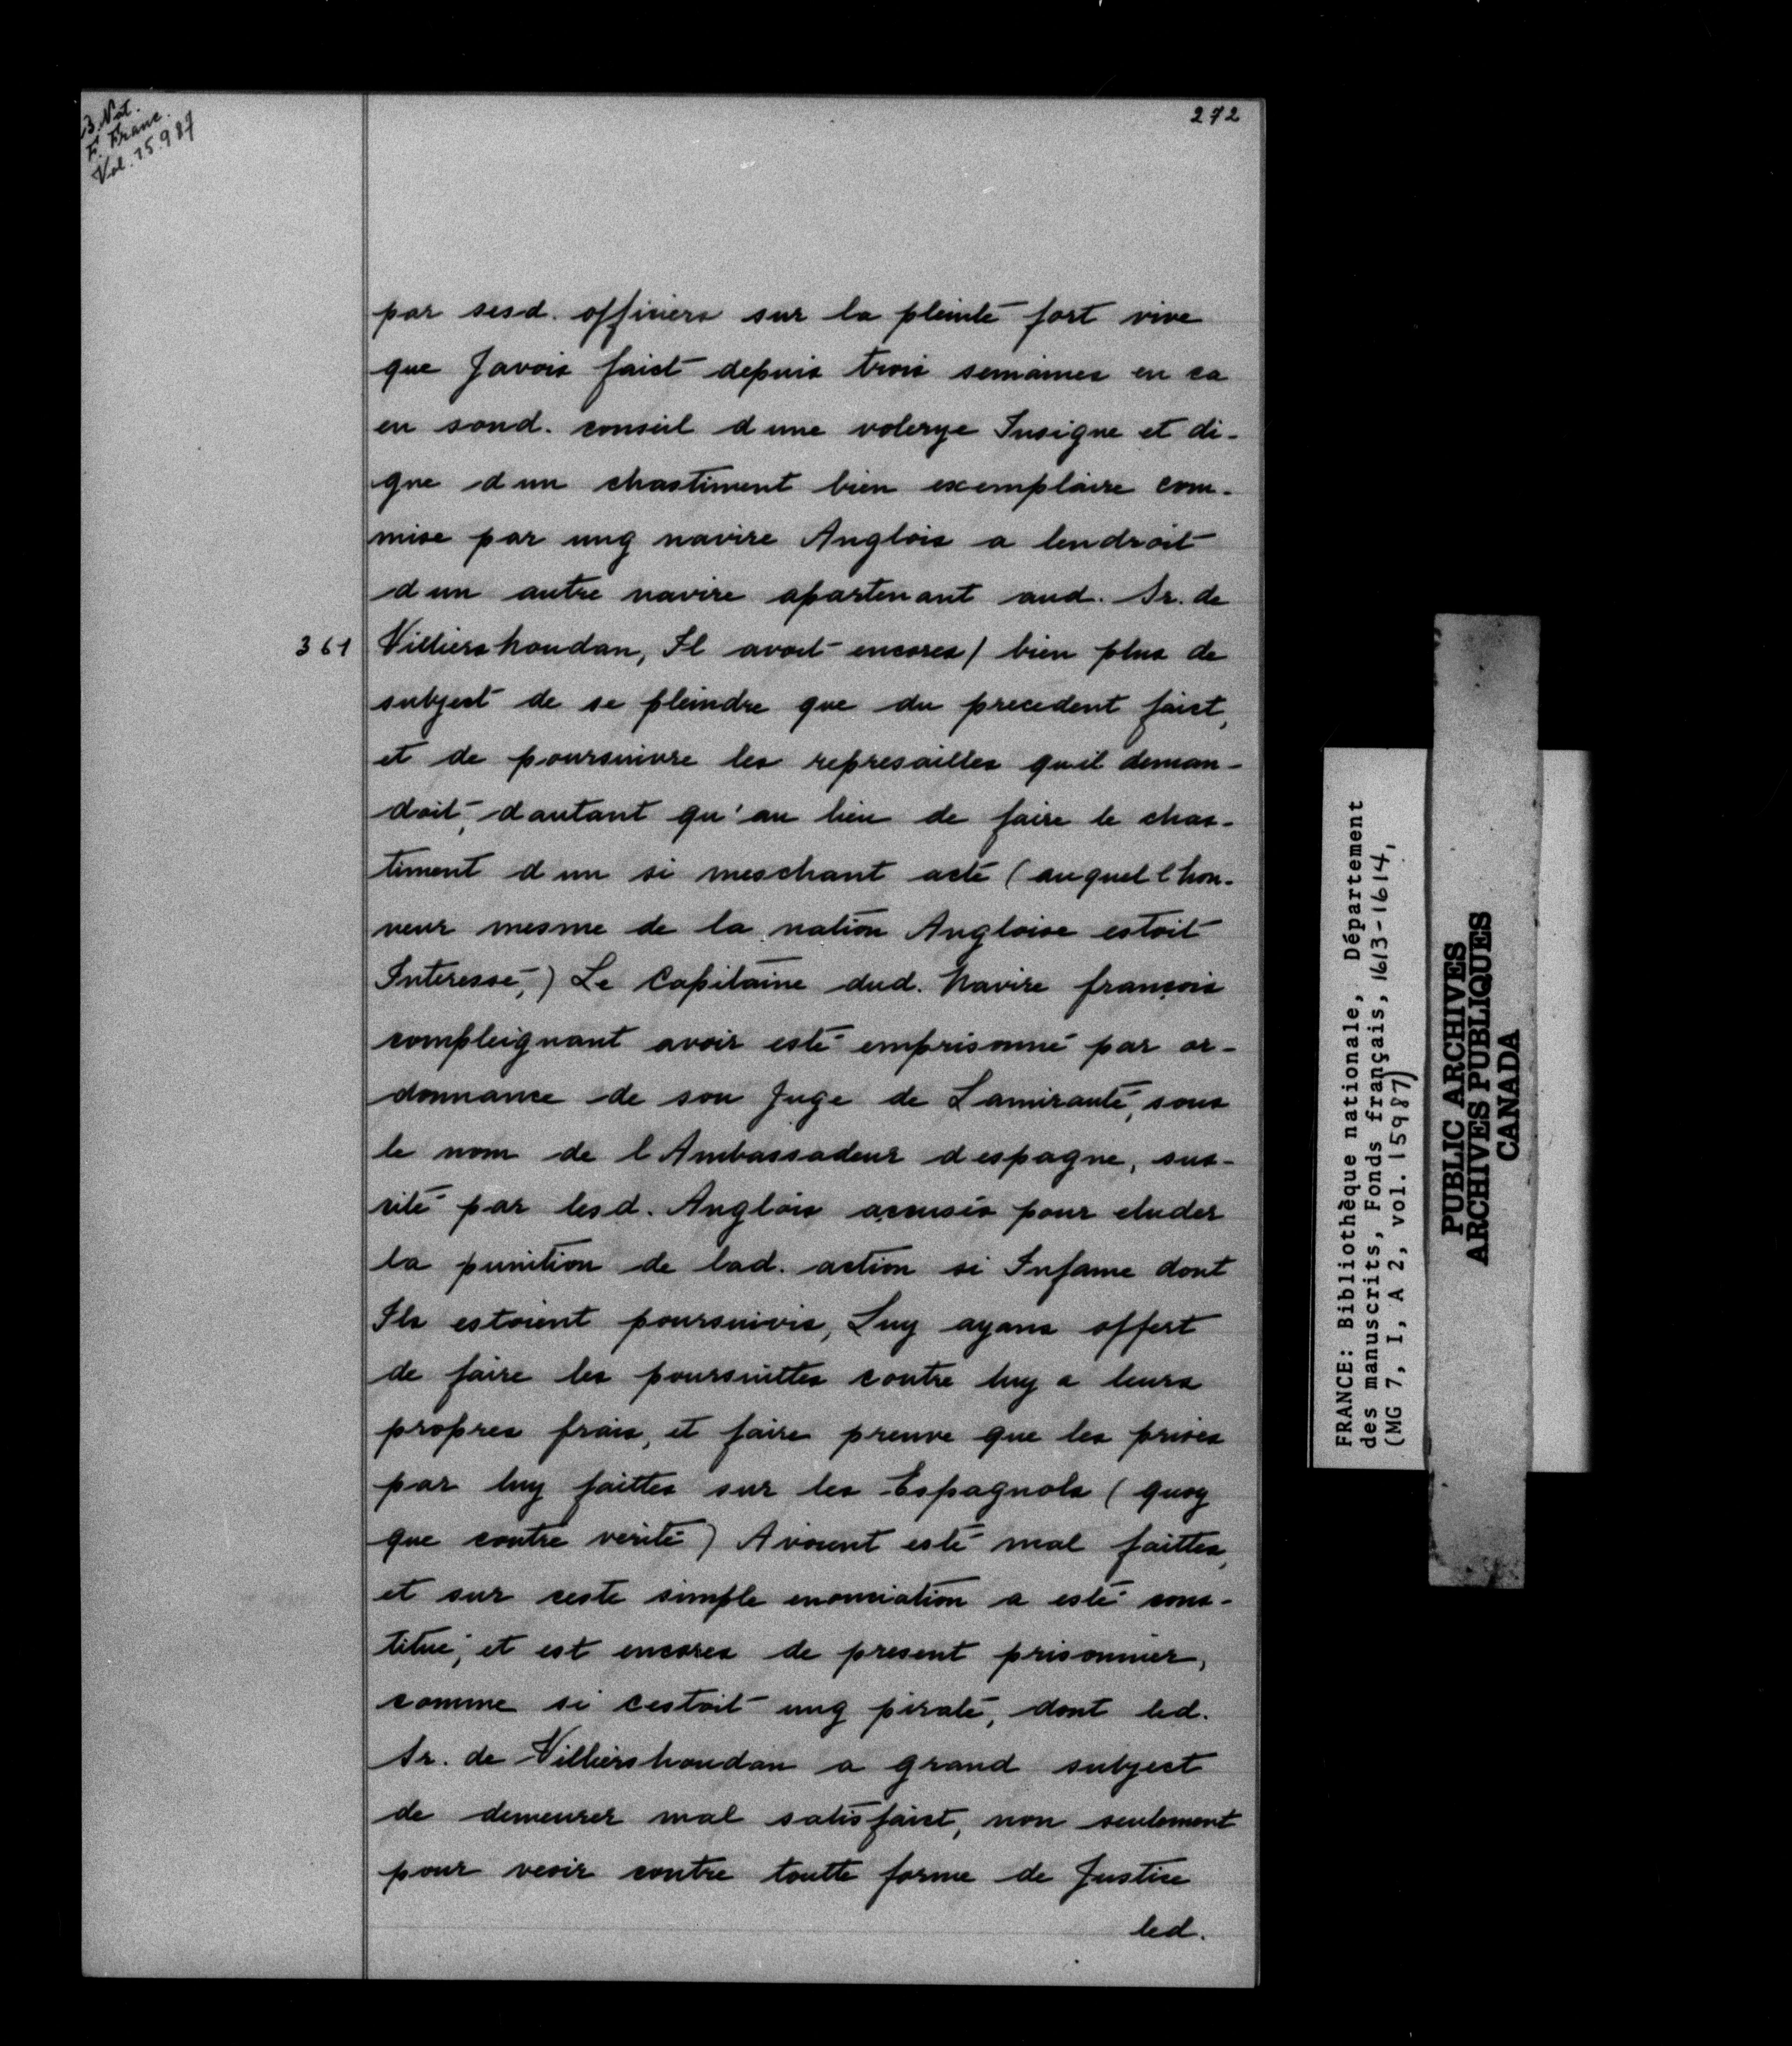 B. Nat.
F. Franc.
Vol. 15.987
272
par sesd. officiers sur la pleinte fort vive
que Javois faict depuis trois semaines en ca
en sond. conseil d une volerye Insigne et di-
gne d un chastiment bien exemplaire com-
mise par ung navire Anglois a lendroit
d un autre navire apartenant aud. Sr. de
361 Villiershoudan, Il avoit encores / bien plus de
subject de se pleindre que du precedent faict,
et de poursuivre les represailles quil deman-
doit, dautant qu'au lieu de faire le chas-
timent d un si meschant acte (auquel l hon-
neur mesme de la nation Angloise estoit
Interessé,) Le Capitaine dud. Navire françois
compleignant avoir esté emprisonné par or-
donnance de son Juge de Lamirauté, sous
le nom de l Ambassadeur d espagne, sus-
cité par lesd. Anglois acusés pour eluder
la punition de lad. action si Infame dont
Ils estoient poursuivis, Luy ayans offert
de faire les poursuittes contre luy a leurs
propres frais, et faire preuve que les prises
par luy faittes sur les Espagnols (quoy
que contre verité) Avoient esté mal faittes,
et sur ceste simple enonciation a esté cons-
titué, et est encores de present prisonnier,
comme si cestoit ung pirate, dont led.
Sr. de Villiershoudan a grand subject
de demeurer mal satisfaict, non seulement
pour veoir contre toutte forme de Justice
led.
FRANCE: Bibliothèque nationale, Département
des manuscrits, Fonds français, 1613-1614,
(MG 7, I, A 2, vol. 15987)
PUBLIC ARCHIVES
ARCHIVES PUBLIQUES
CANADA